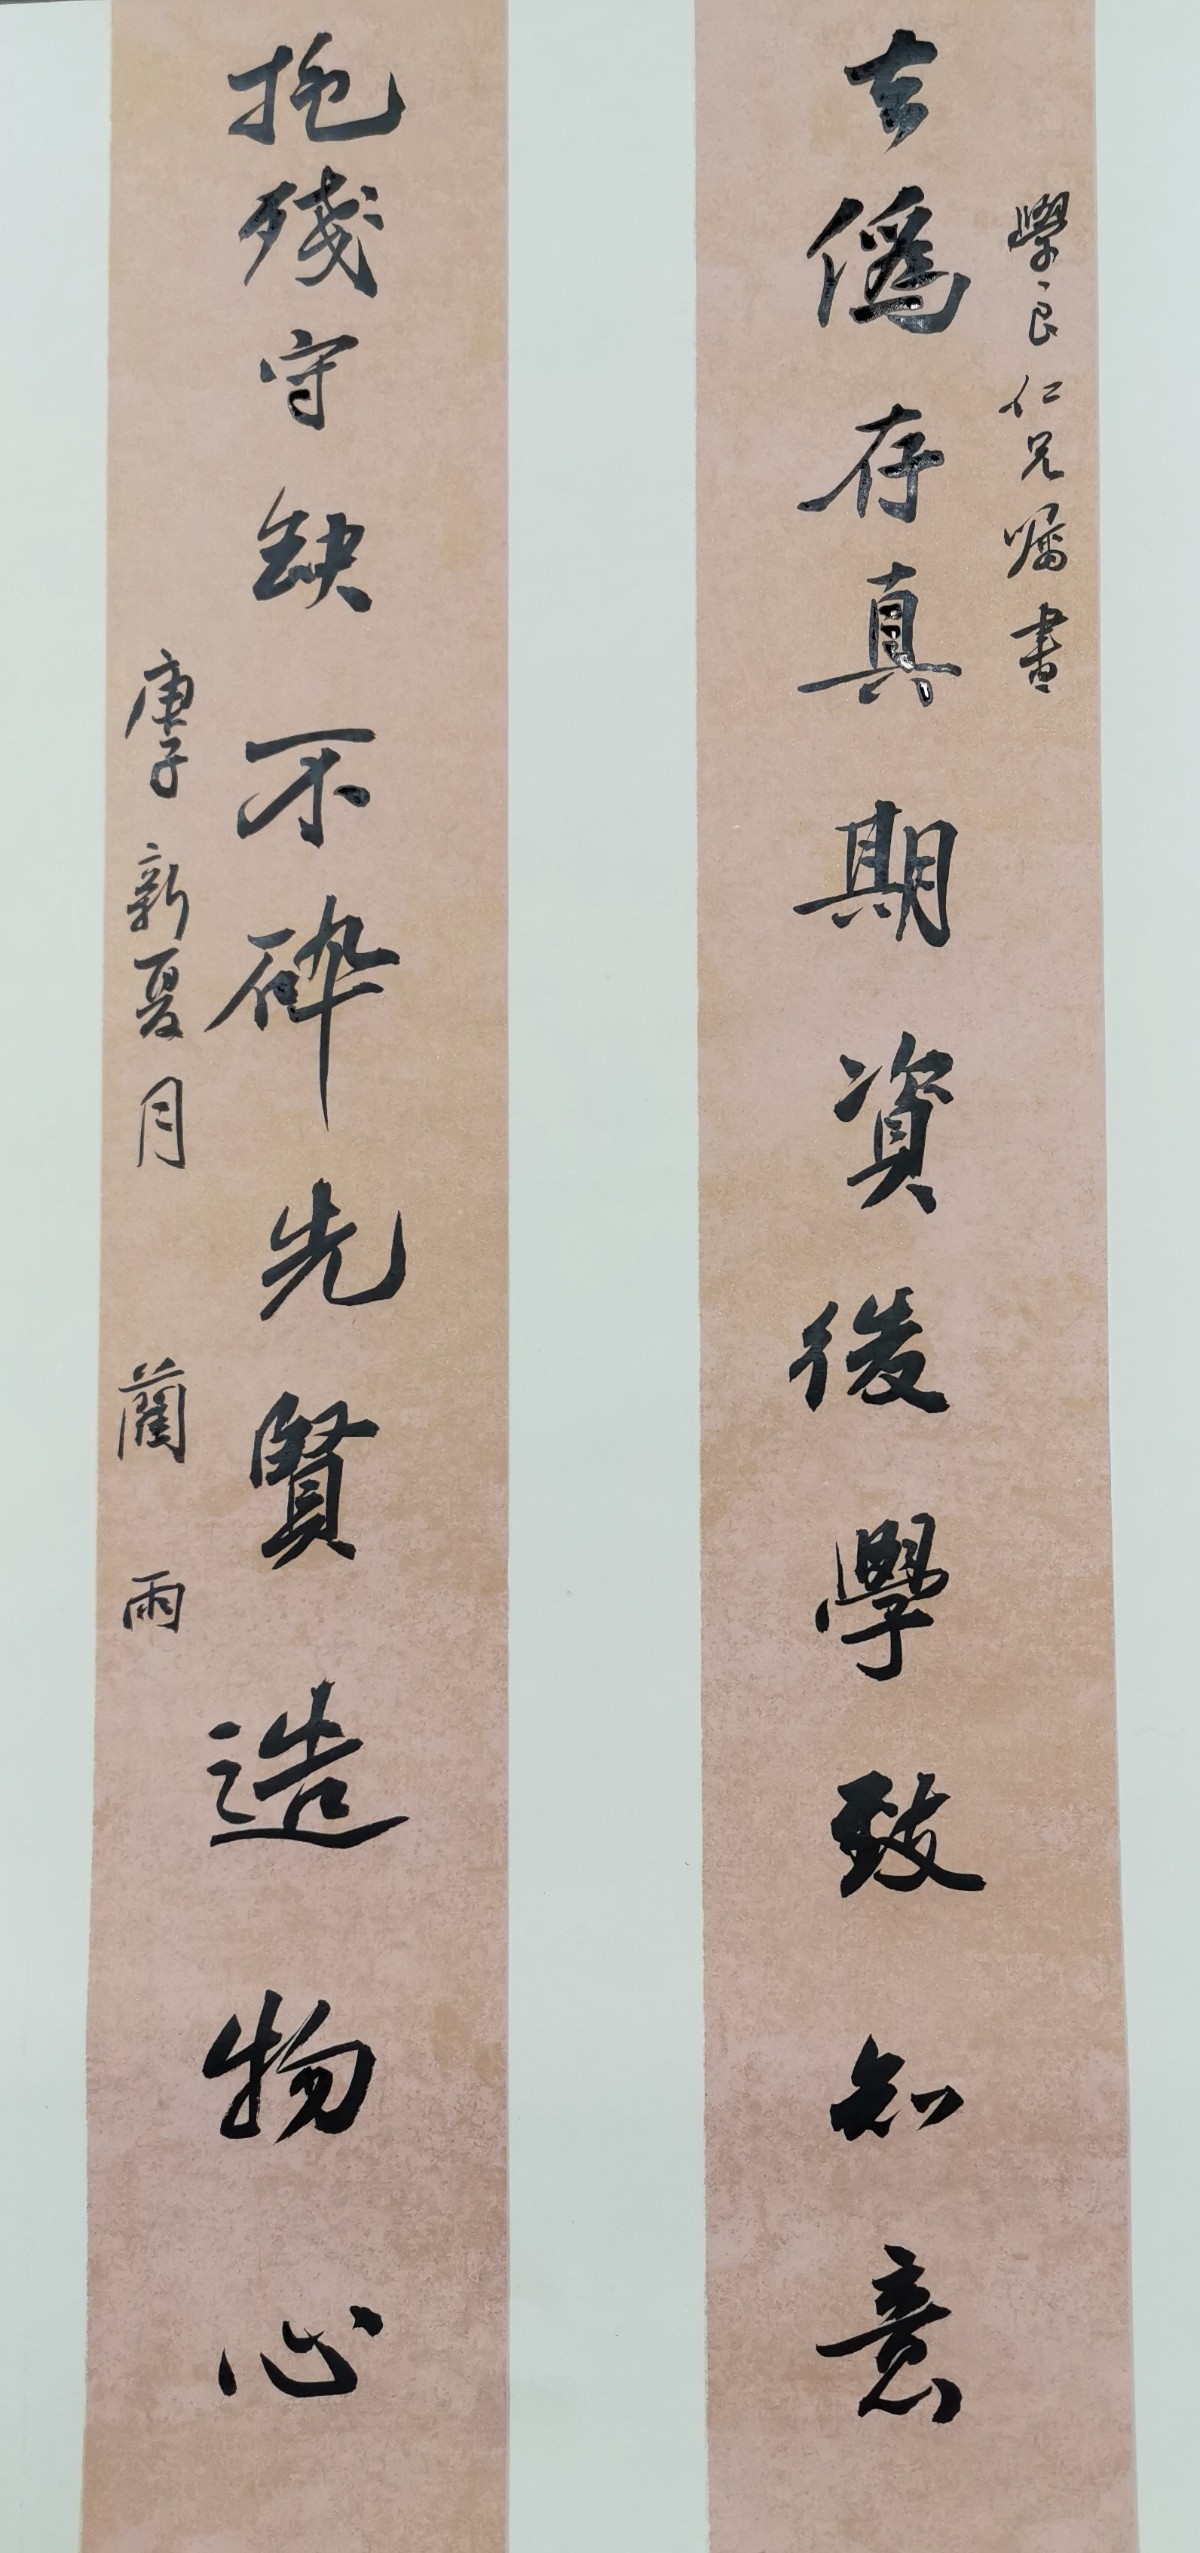 學良仁兄嘱書
去偽存真期資後學致知意
抱殘守缺不碎先賢造物心
庚子新夏月 蘭雨